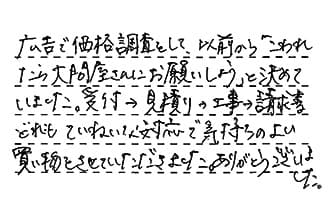 広告で価格調査をして、以前から「こわれ
たら大門屋さんにお願いしよう」と決めて
いました。受付→見積り→工事→請求書
どれもていねいな対応で気持ちのよい
買い物をさせていただきました。ありがとうございま
した。